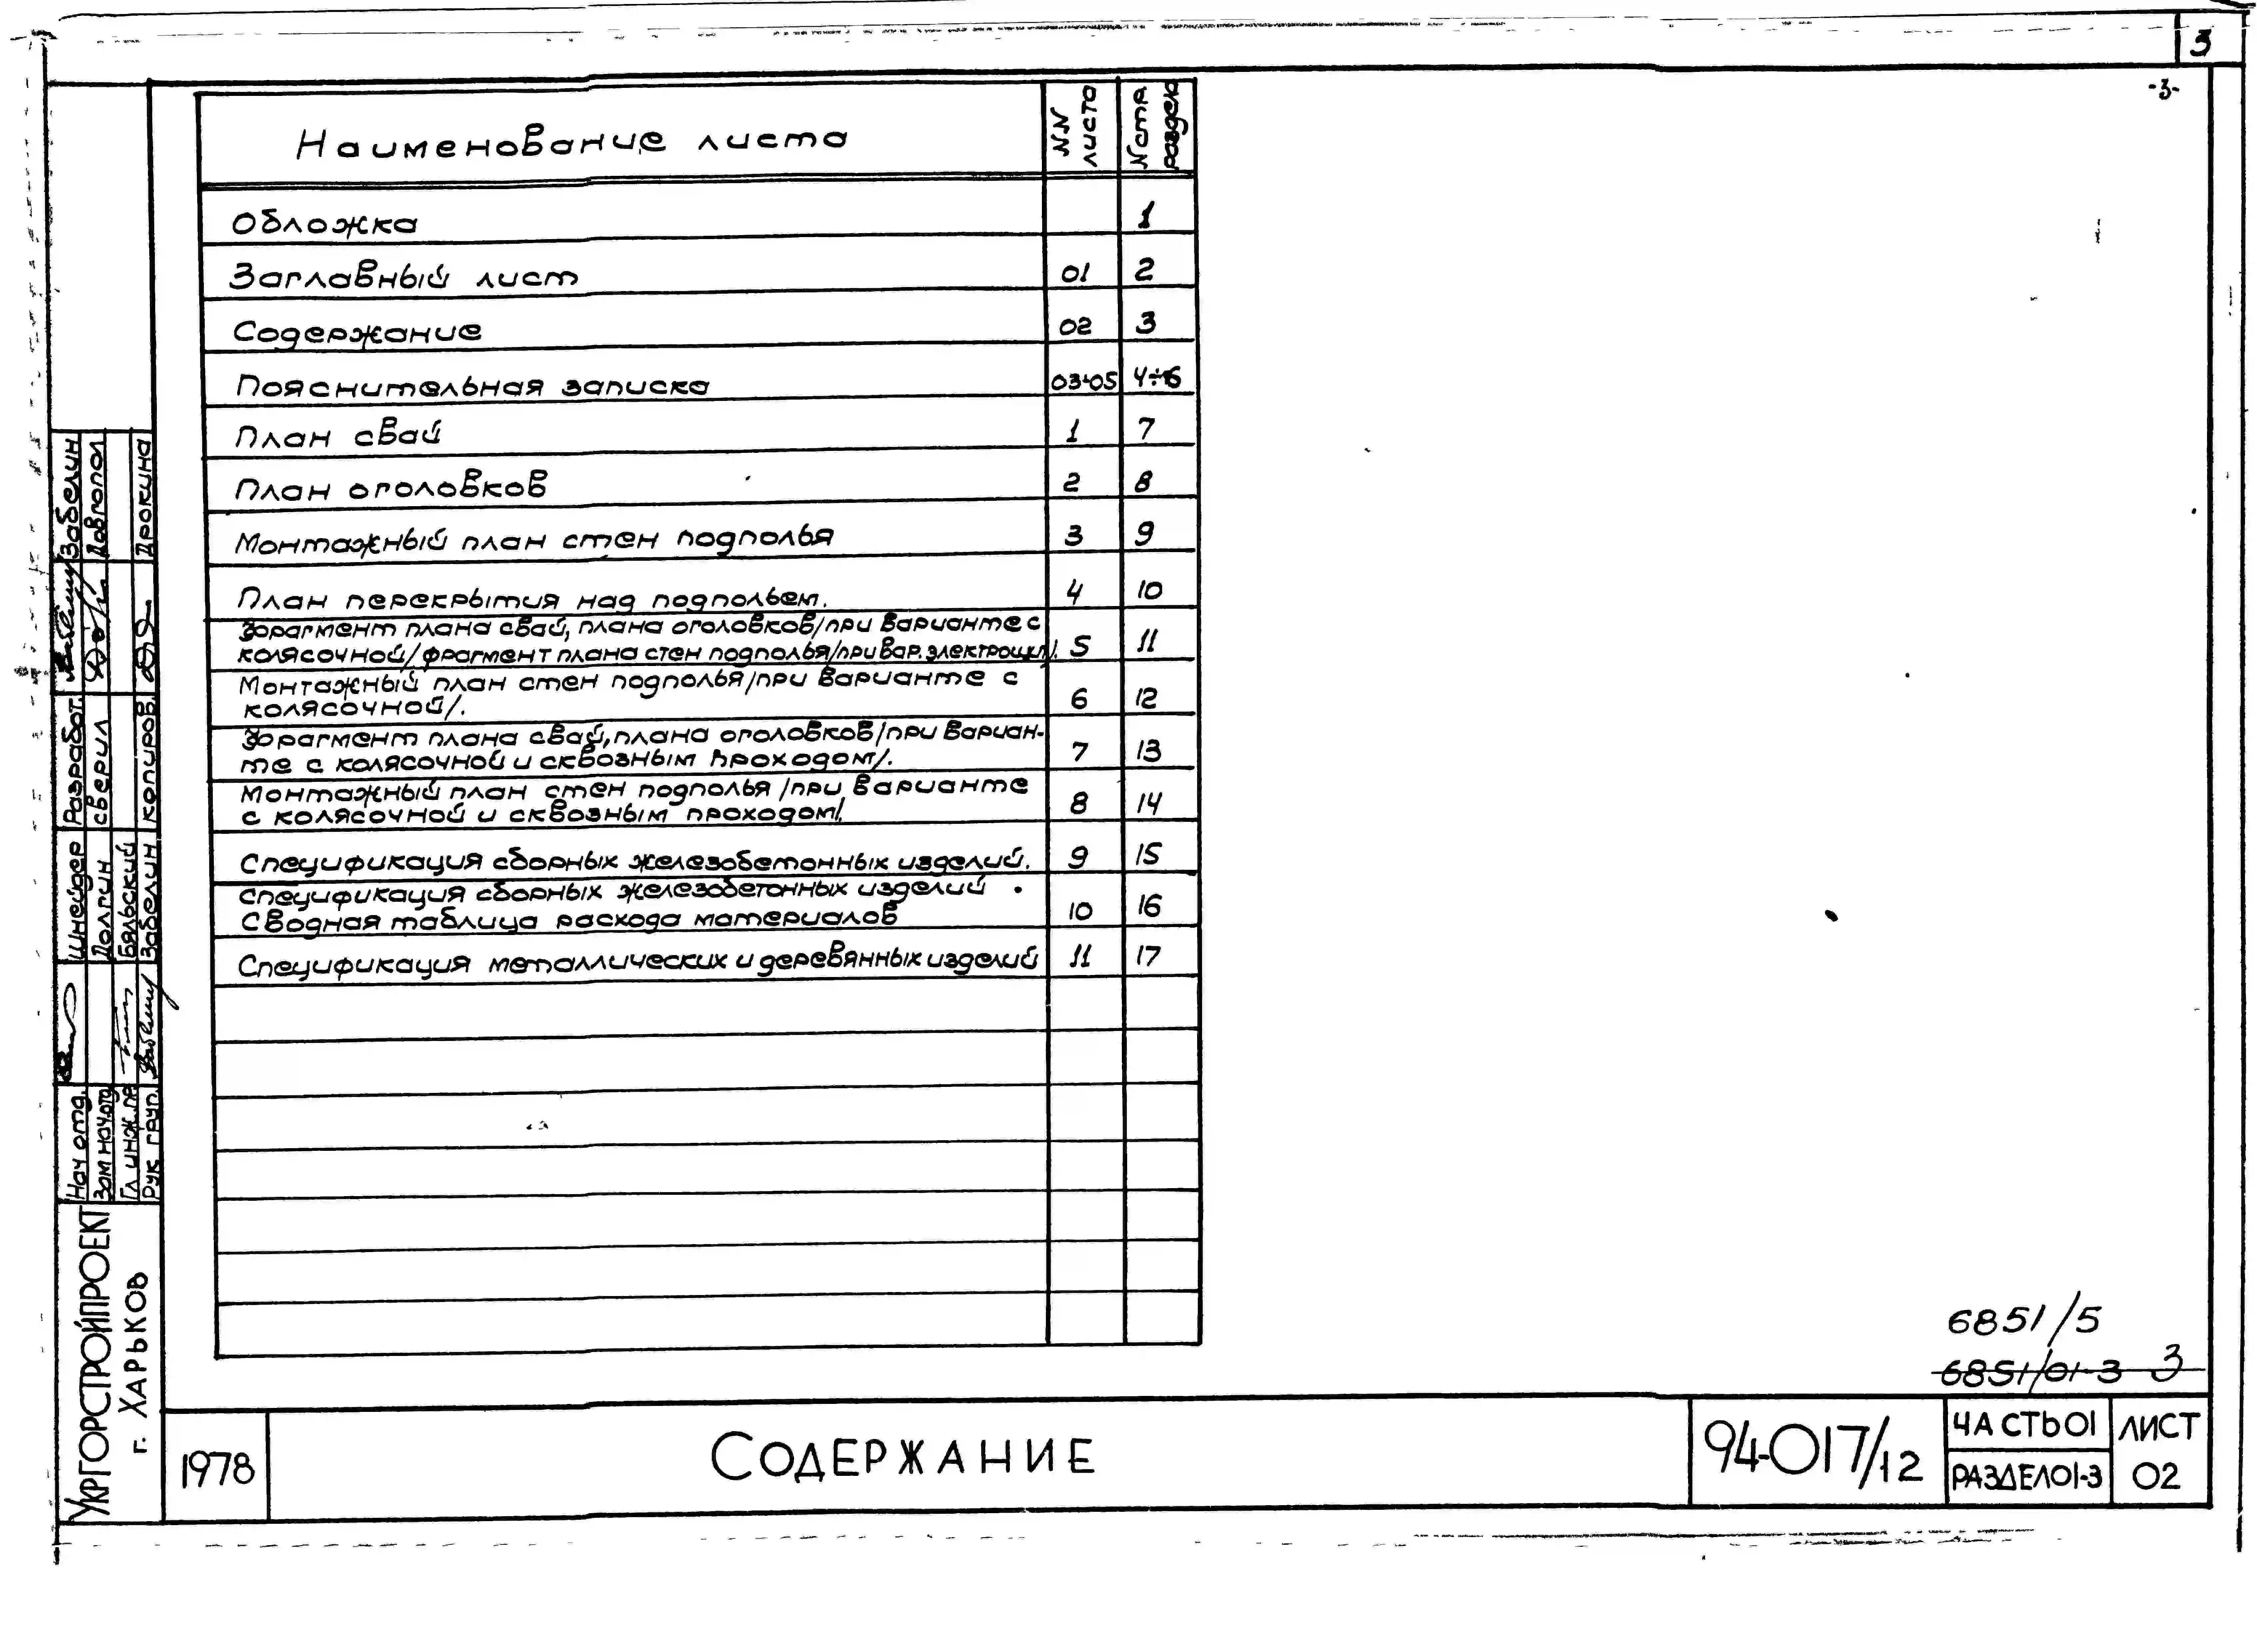 3
-3-
Наименование листа
NN листа
N стр. раздела
Обложка 1
Заглавный лист 01 2
Содержание 02 3
Пояснительная записка 03÷05 4÷6
План свай 1 7
План оголовков 2 8
Монтажный план стен подполья 3 9
План перекрытия над подпольем. 4 10
Фрагмент плана свай, плана оголовков/при варианте с
колясочной/фрагмент плана стен подполья/при вар. электрощит./. 5 11
Монтажный план стен подполья/при варианте с
колясочной/. 6 12
Фрагмент плана свай, плана оголовков/при вариан-
те с колясочной и сквозным проходом/. 7 13
Монтажный план стен подполья/при варианте
с колясочной и сквозным проходом/. 8 14
Спецификация сборных железобетонных изделий. 9 15
Спецификация сборных железобетонных изделий
Сводная таблица расхода материалов 10 16
Спецификация металлических и деревянных изделий 11 17
6851/5
6851/01-3 3
1978
Содержание
94-017/12
Часть 01
Раздел 01-3
Лист
02
Укргорстройпроект
г. Харьков
Нач отд. Шнейдер Разработ. Забелин
Зам нач. отд Долгин сверил Довгопол
Гл инж. пр Бяльский
Рук груп. Забелин копиров. Дрокина